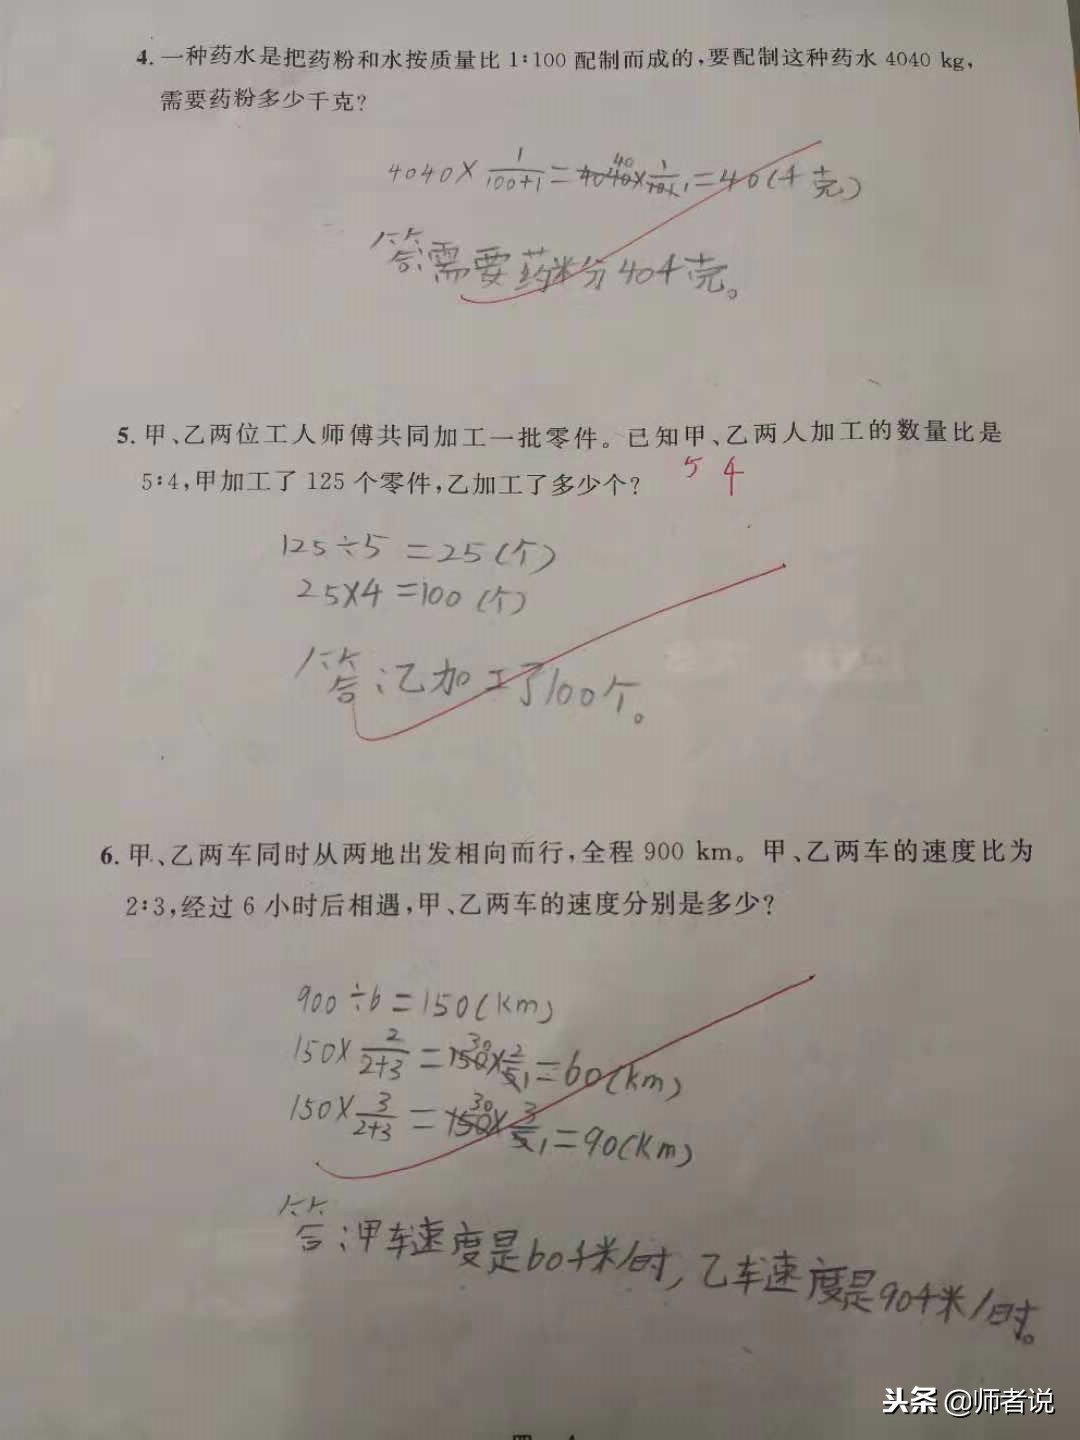 4. 一种药水是把药粉和水按质量比 1:100 配制而成的,要配制这种药水 4040 kg,
需要药粉多少千克?
4040×1/(100+1)=4040×1/101=40(千克)
40 1 1
答:需要药粉40千克。
5. 甲、乙两位工人师傅共同加工一批零件。已知甲、乙两人加工的数量比是
5:4,甲加工了 125 个零件,乙加工了多少个?
5 4
125÷5=25(个)
25×4=100(个)
答:乙加工了100个。
6. 甲、乙两车同时从两地出发相向而行,全程 900 km。甲、乙两车的速度比为
2:3,经过 6 小时后相遇,甲、乙两车的速度分别是多少?
900÷6=150(km)
30
150×2/(2+3)=150×2/5=60(km)
1
30
150×3/(2+3)=150×3/5=90(km)
1
答:甲车速度是60千米/时,乙车速度是90千米/时。
头条 @师者说